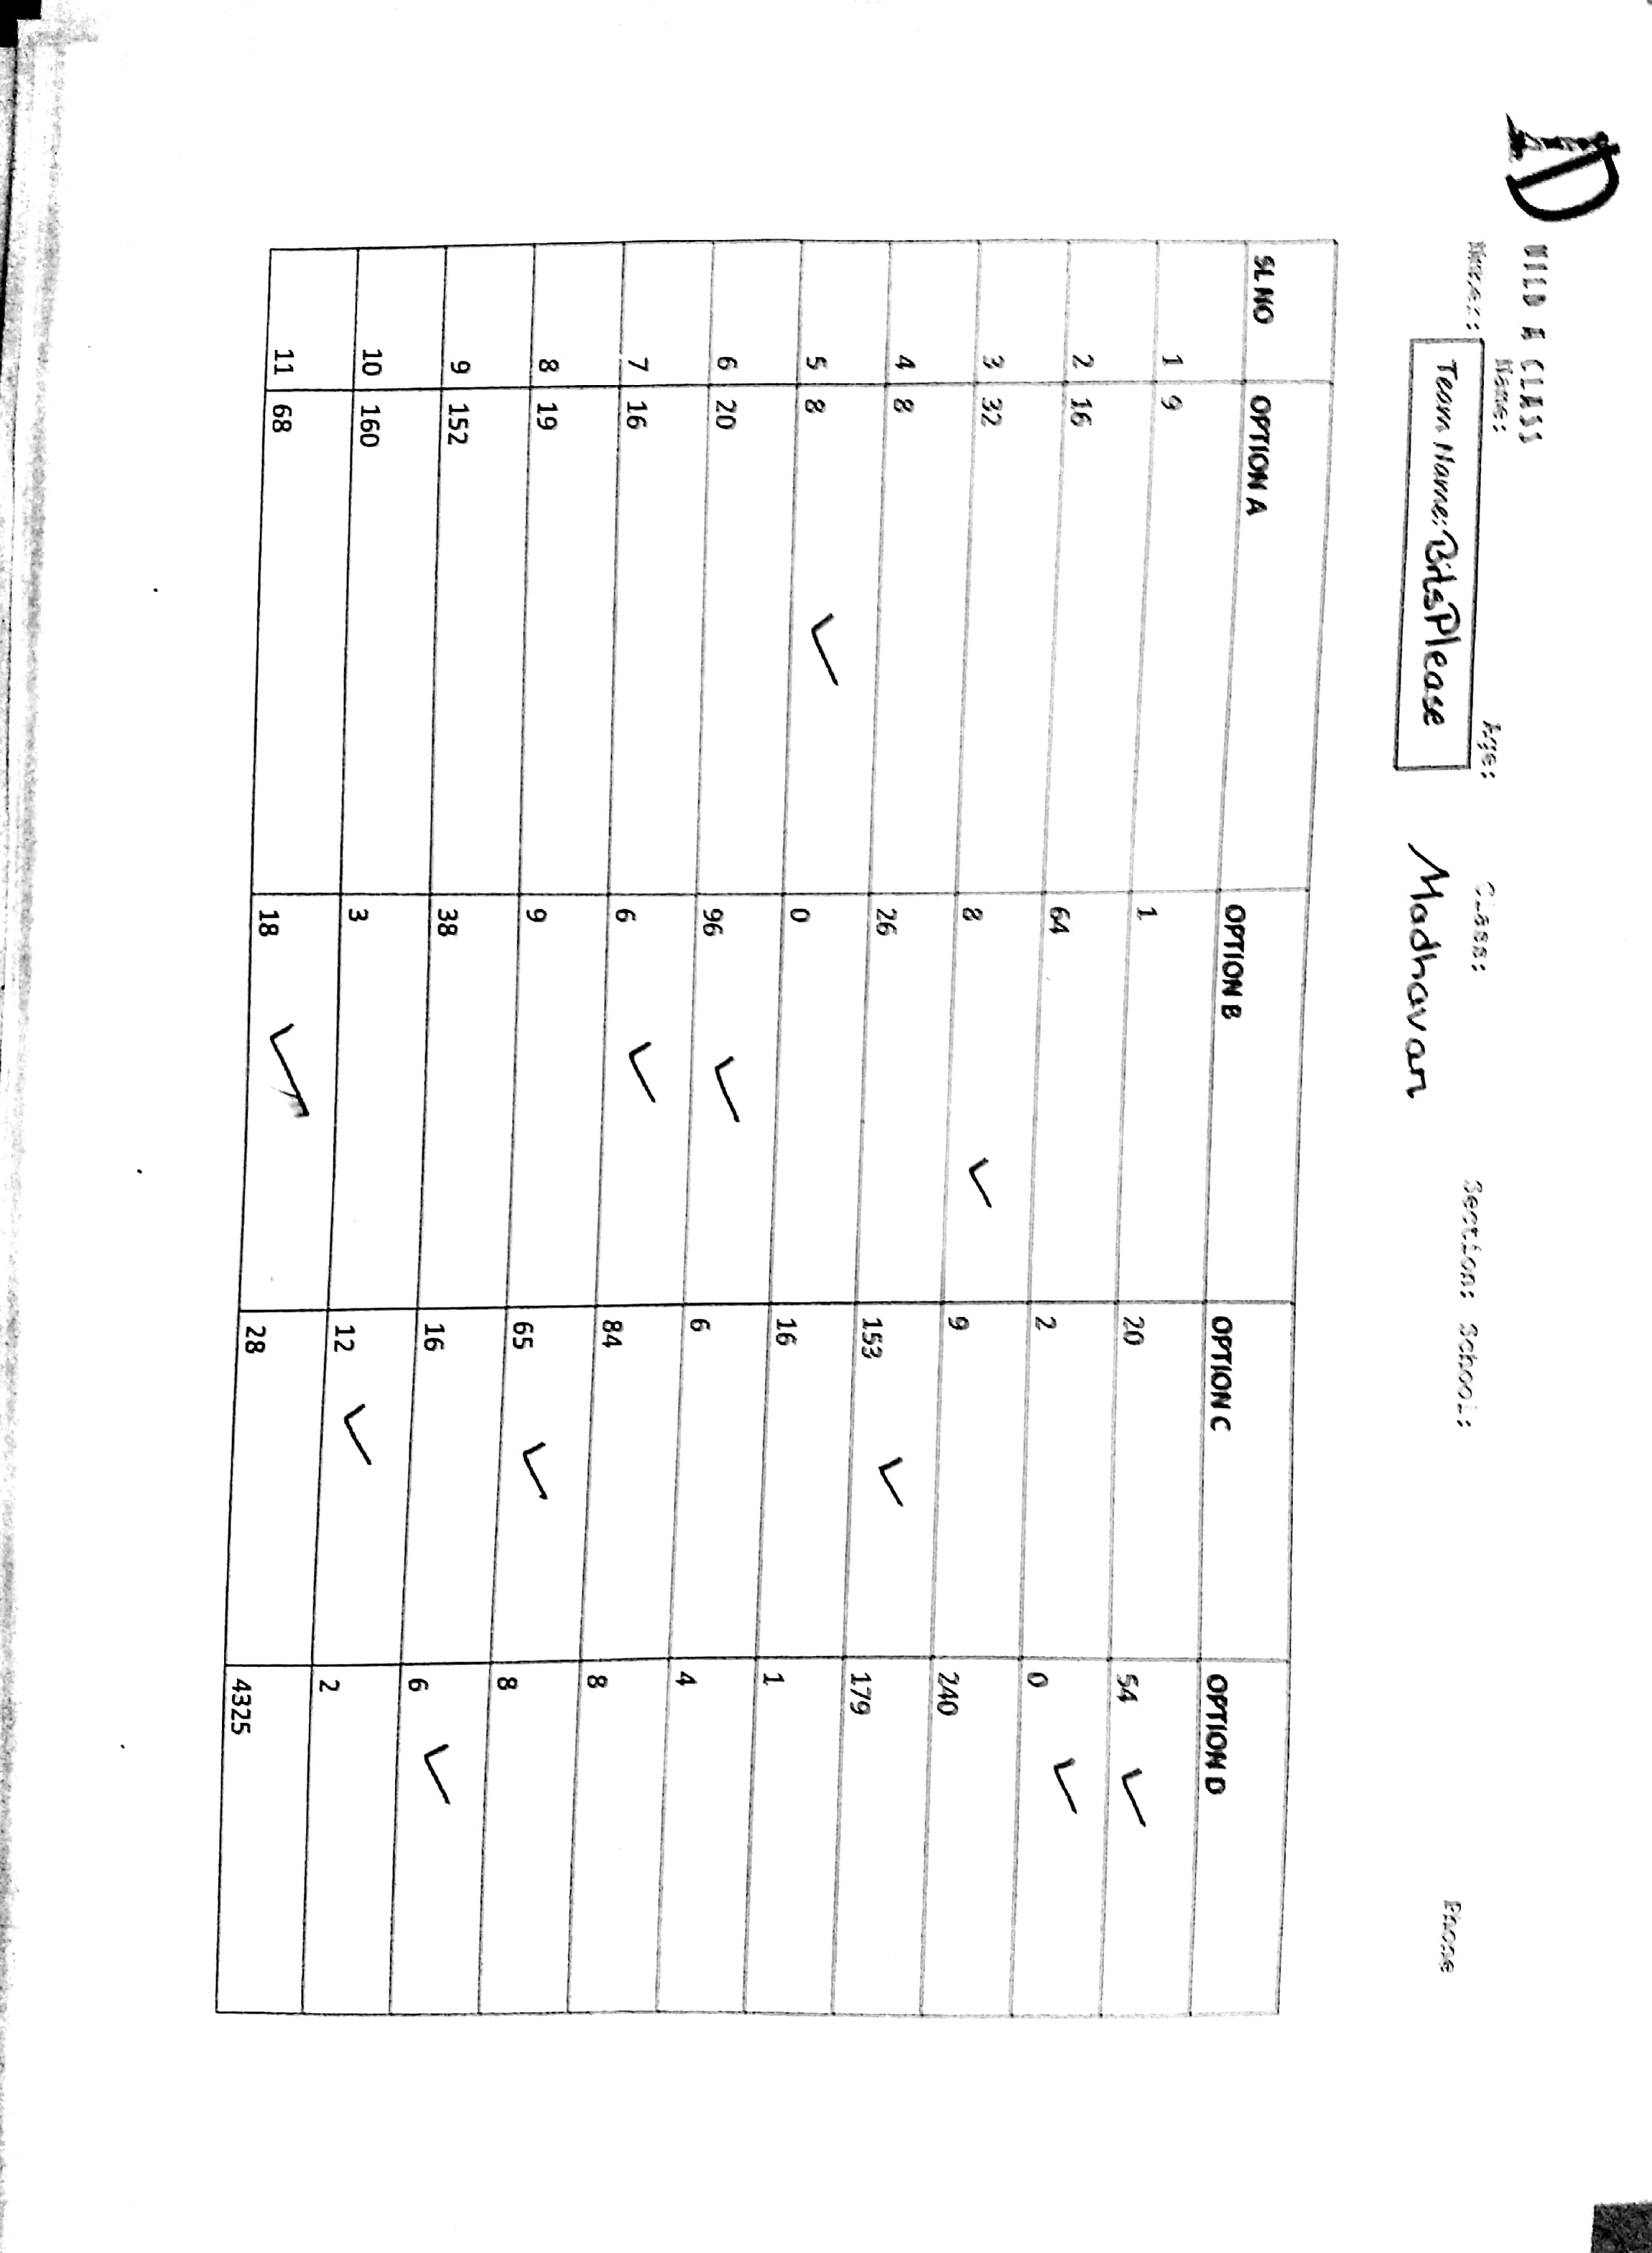 UILD A CLASS
Name: Age: Class: Section: School: Phone
Number:
Team Name: BitsPlease Madhavan
SL NO OPTION A OPTION B OPTION C OPTION D
1 9 1 20 54 ✓
2 16 64 2 0 ✓
3 32 8 ✓ 9 240
4 8 26 153 ✓ 179
5 8 ✓ 0 16 1
6 20 96 ✓ 6 4
7 16 6 ✓ 84 8
8 19 9 65 ✓ 8
9 152 38 16 6 ✓
10 160 3 12 ✓ 2
11 68 18 ✓ 28 4325